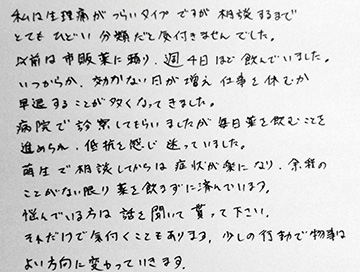 私は生理痛がつらいタイプですが相談するまで
とてもひどい分類だと気付きませんでした。
以前は市販薬に頼り、週4日ほど飲んでいました。
いつからか、効かない日が増え仕事を休むか
早退することが多くなってきました。
病院で診察してもらいましたが毎日薬を飲むことを
進められ、低抗を感じ迷っていました。
萌生で相談してからは症状が楽になり、余程の
ことがない限り薬を飲まずに済んでいます。
悩んでいる方は話を聞いて貰って下さい。
それだけで気付くこともあります。少しの行動で物事は
よい方向に変わっていきます。